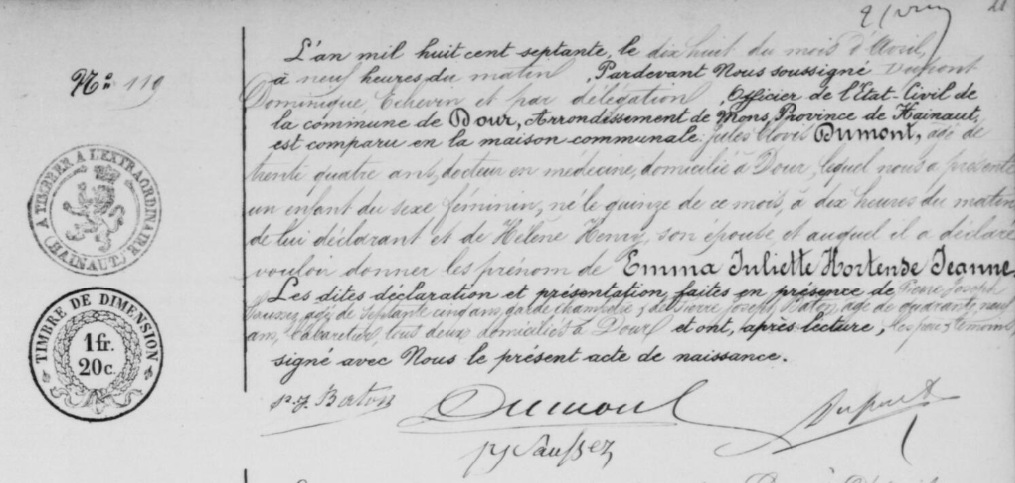 21
Nº 119
L'an mil huit cent septante, le dix huit du mois d'Avril,
à neuf heures du matin, Pardevant Nous soussigné Dumont
Dominique Echevin et par délégation, Officier de l'État-Civil de
la commune de Dour, Arrondissement de Mons, Province de Hainaut,
est comparu en la maison communale: Jules Clovis Dumont, agé de
trente quatre ans, docteur en médecine, domicilié à Dour, lequel nous a présenté
un enfant du sexe féminin, né le quinze de ce mois, à dix heures du matin
de lui déclarant et de Hélène Henry, son épouse, et auquel il a déclaré
vouloir donner les prénom de Emma Juliette Hortense Jeanne.
Les dites déclaration et présentation faites en présence de Pierre Joseph
Saussez, agé de septante cinq ans, garde champêtre, & de Pierre Joseph agé de quarante neuf
ans, Cabaretier, tous deux domiciliés à Dour, et ont, après lecture, les père & témoins,
signé avec Nous le présent acte de naissance.
p. j. Barton Dumont
pj Saussez
TIMBRER A L'EXTRAORDINAIRE
(HAINAUT)
TIMBRE DE DIMENSION
1 fr.
20 c.